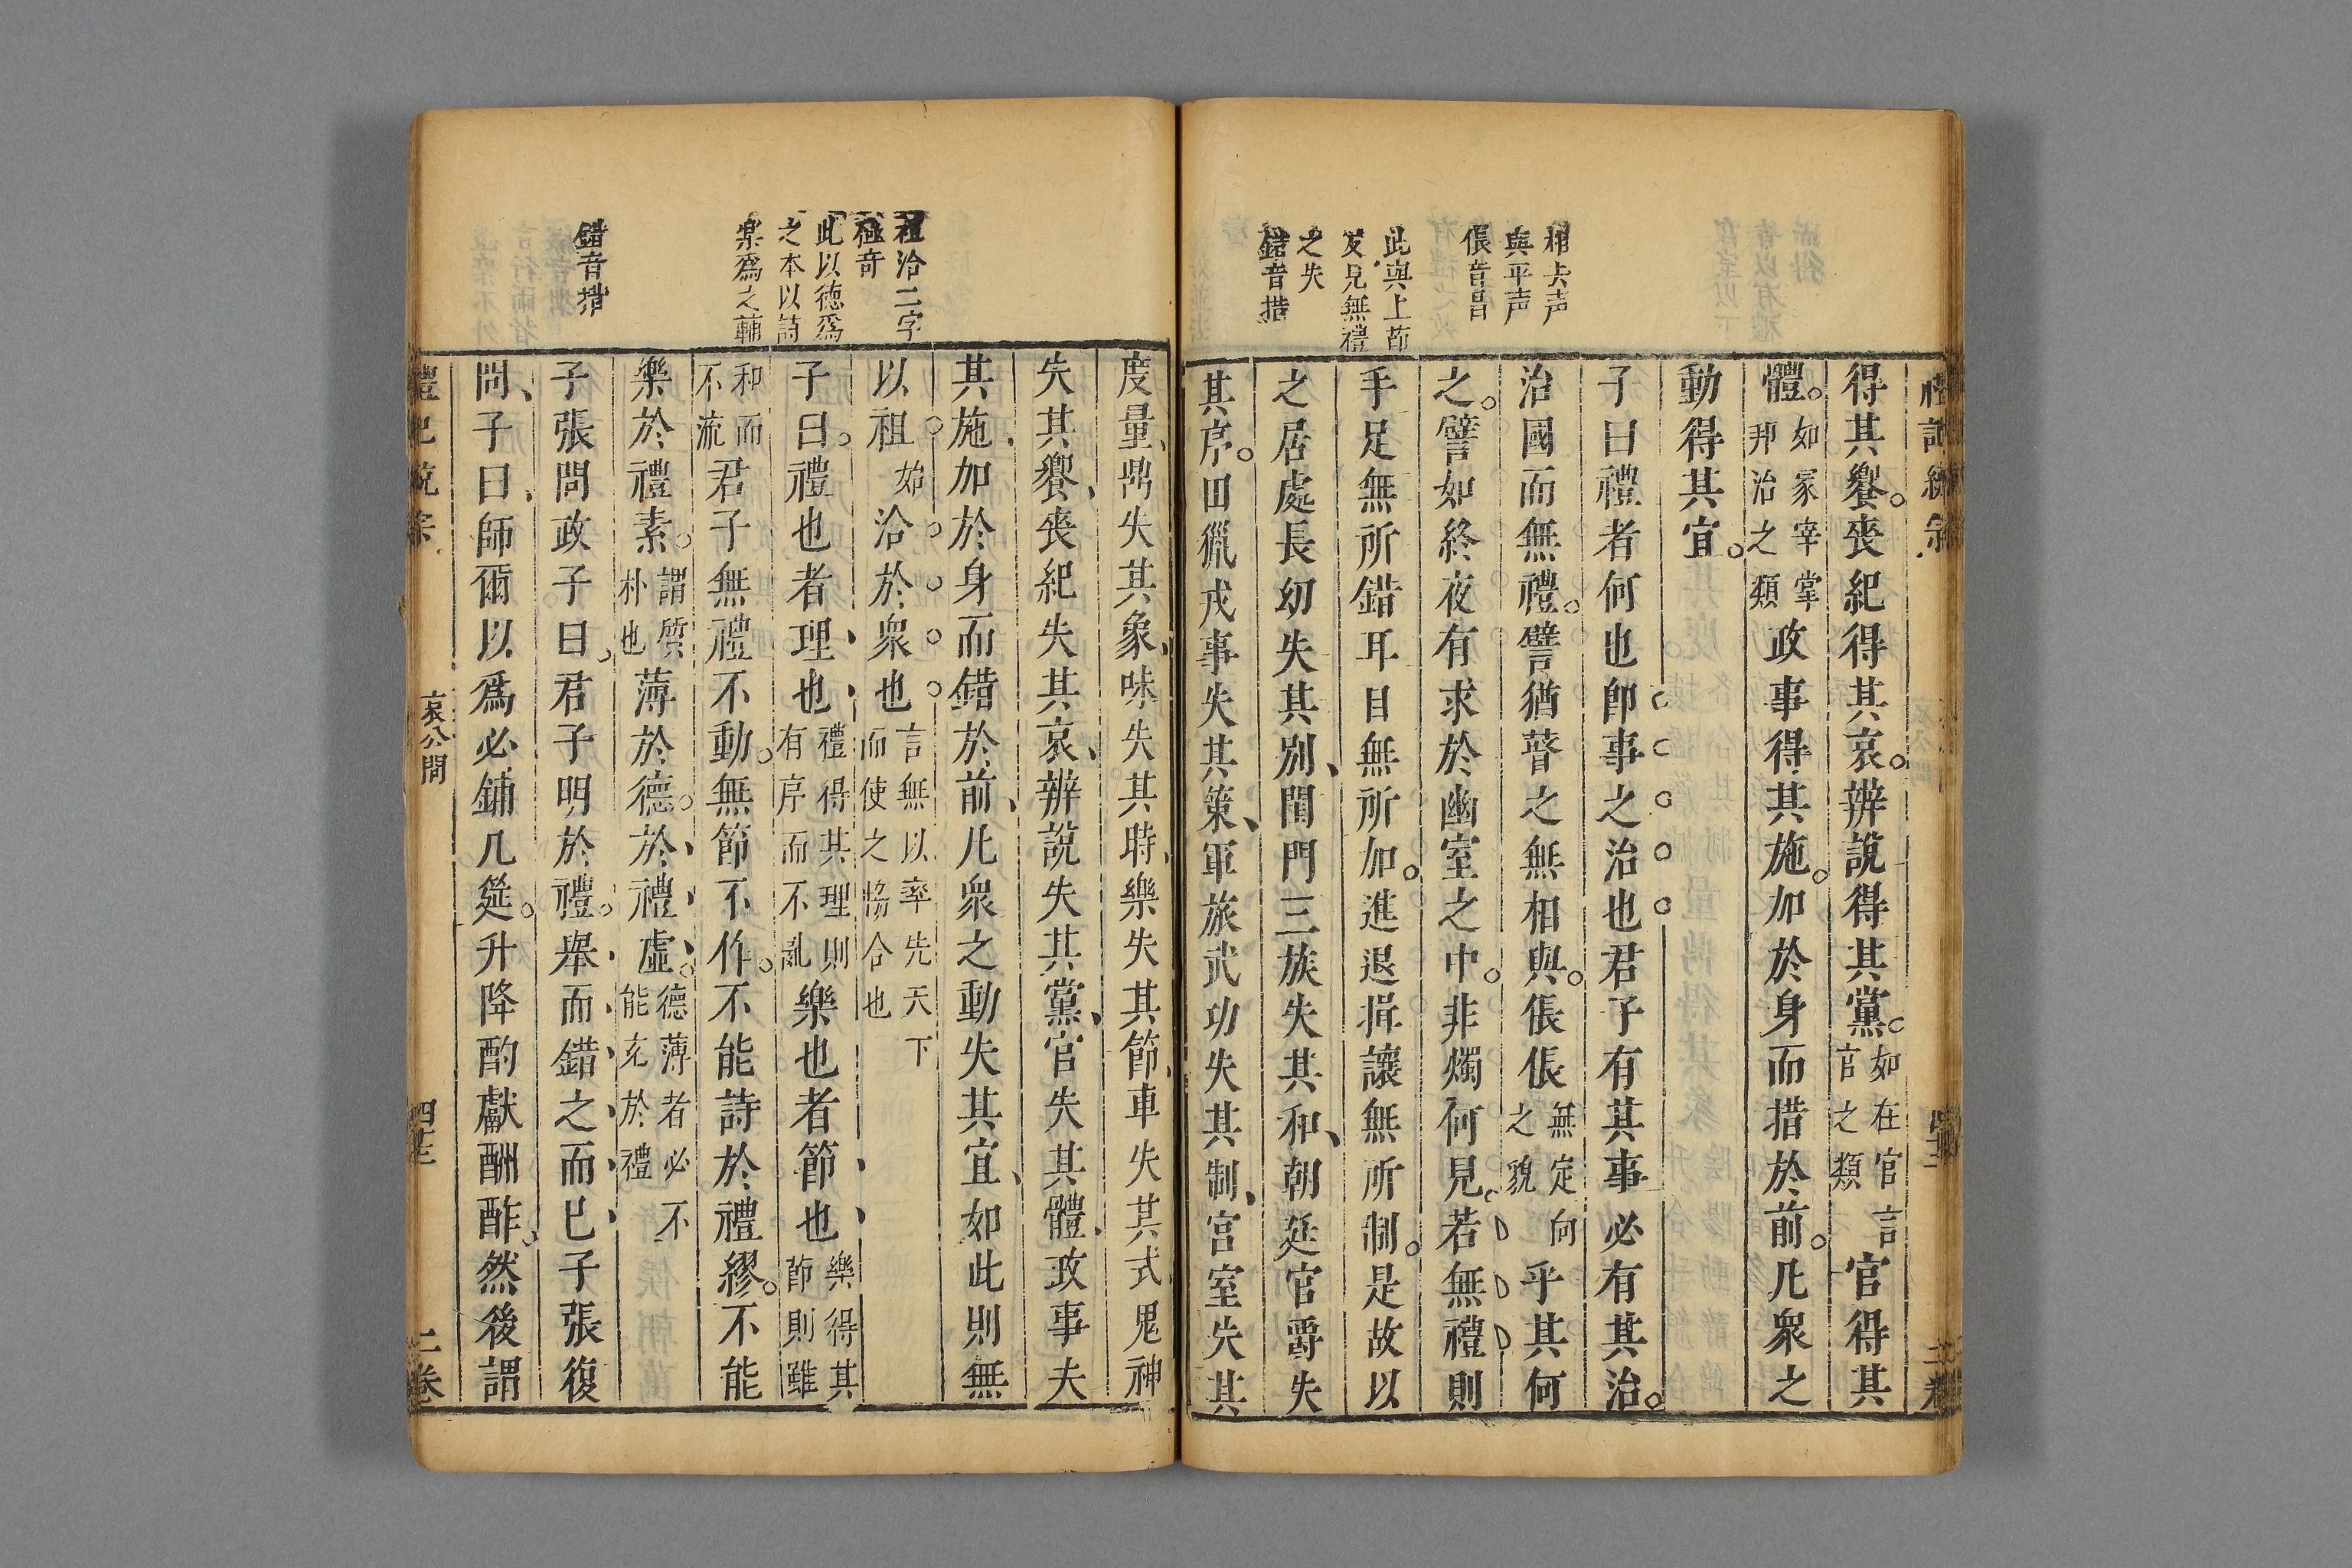 相去声
與平声
倀音昌
此與上莭
反見無禮
之失
錯音措
得其饗喪紀得其哀辨說得其黨如在官言官之類官得其
體如冡宰掌邦治之類政事得其施加於身而措於前凡衆之
動得其宜
子曰禮者何也卽事之治也君子有其事必有其治
治國而無禮譬猶瞽之無相與倀倀無定向之貌乎其何
之譬如終夜有求於幽室之中非燭何見若無禮則
手足無所錯耳目無所加進退揖讓無所制是故以
之居處長幼失其別閨門三族失其和朝廷官爵失
其序田獵戎事失其策軍旅武功失其制宫室失其
祖洽二字
極竒
此以德爲
之本以詩
樂爲之輔
錯音措
度量鼎失其象味失其時樂失其節車失其式鬼神
失其饗喪紀失其哀辨說失其黨官失其體政事夫
其施加於身而錯於前凡衆之動失其宜如此則無
以祖始洽於衆也言無以率先天下而使之恊合也
子曰禮也者理也禮得其理則有序而不亂樂也者節也樂得其莭則雖
和而不流君子無禮不動無節不作不能詩於禮繆不能
樂於禮素謂質朴也薄於德於禮虛德薄者必不能充於禮
子張問政子曰君子明於禮舉而錯之而已子張復
問子曰師爾以爲必鋪几筵升降酌獻酬酢然後謂
禮記說宗
哀公問
四十三
二卷